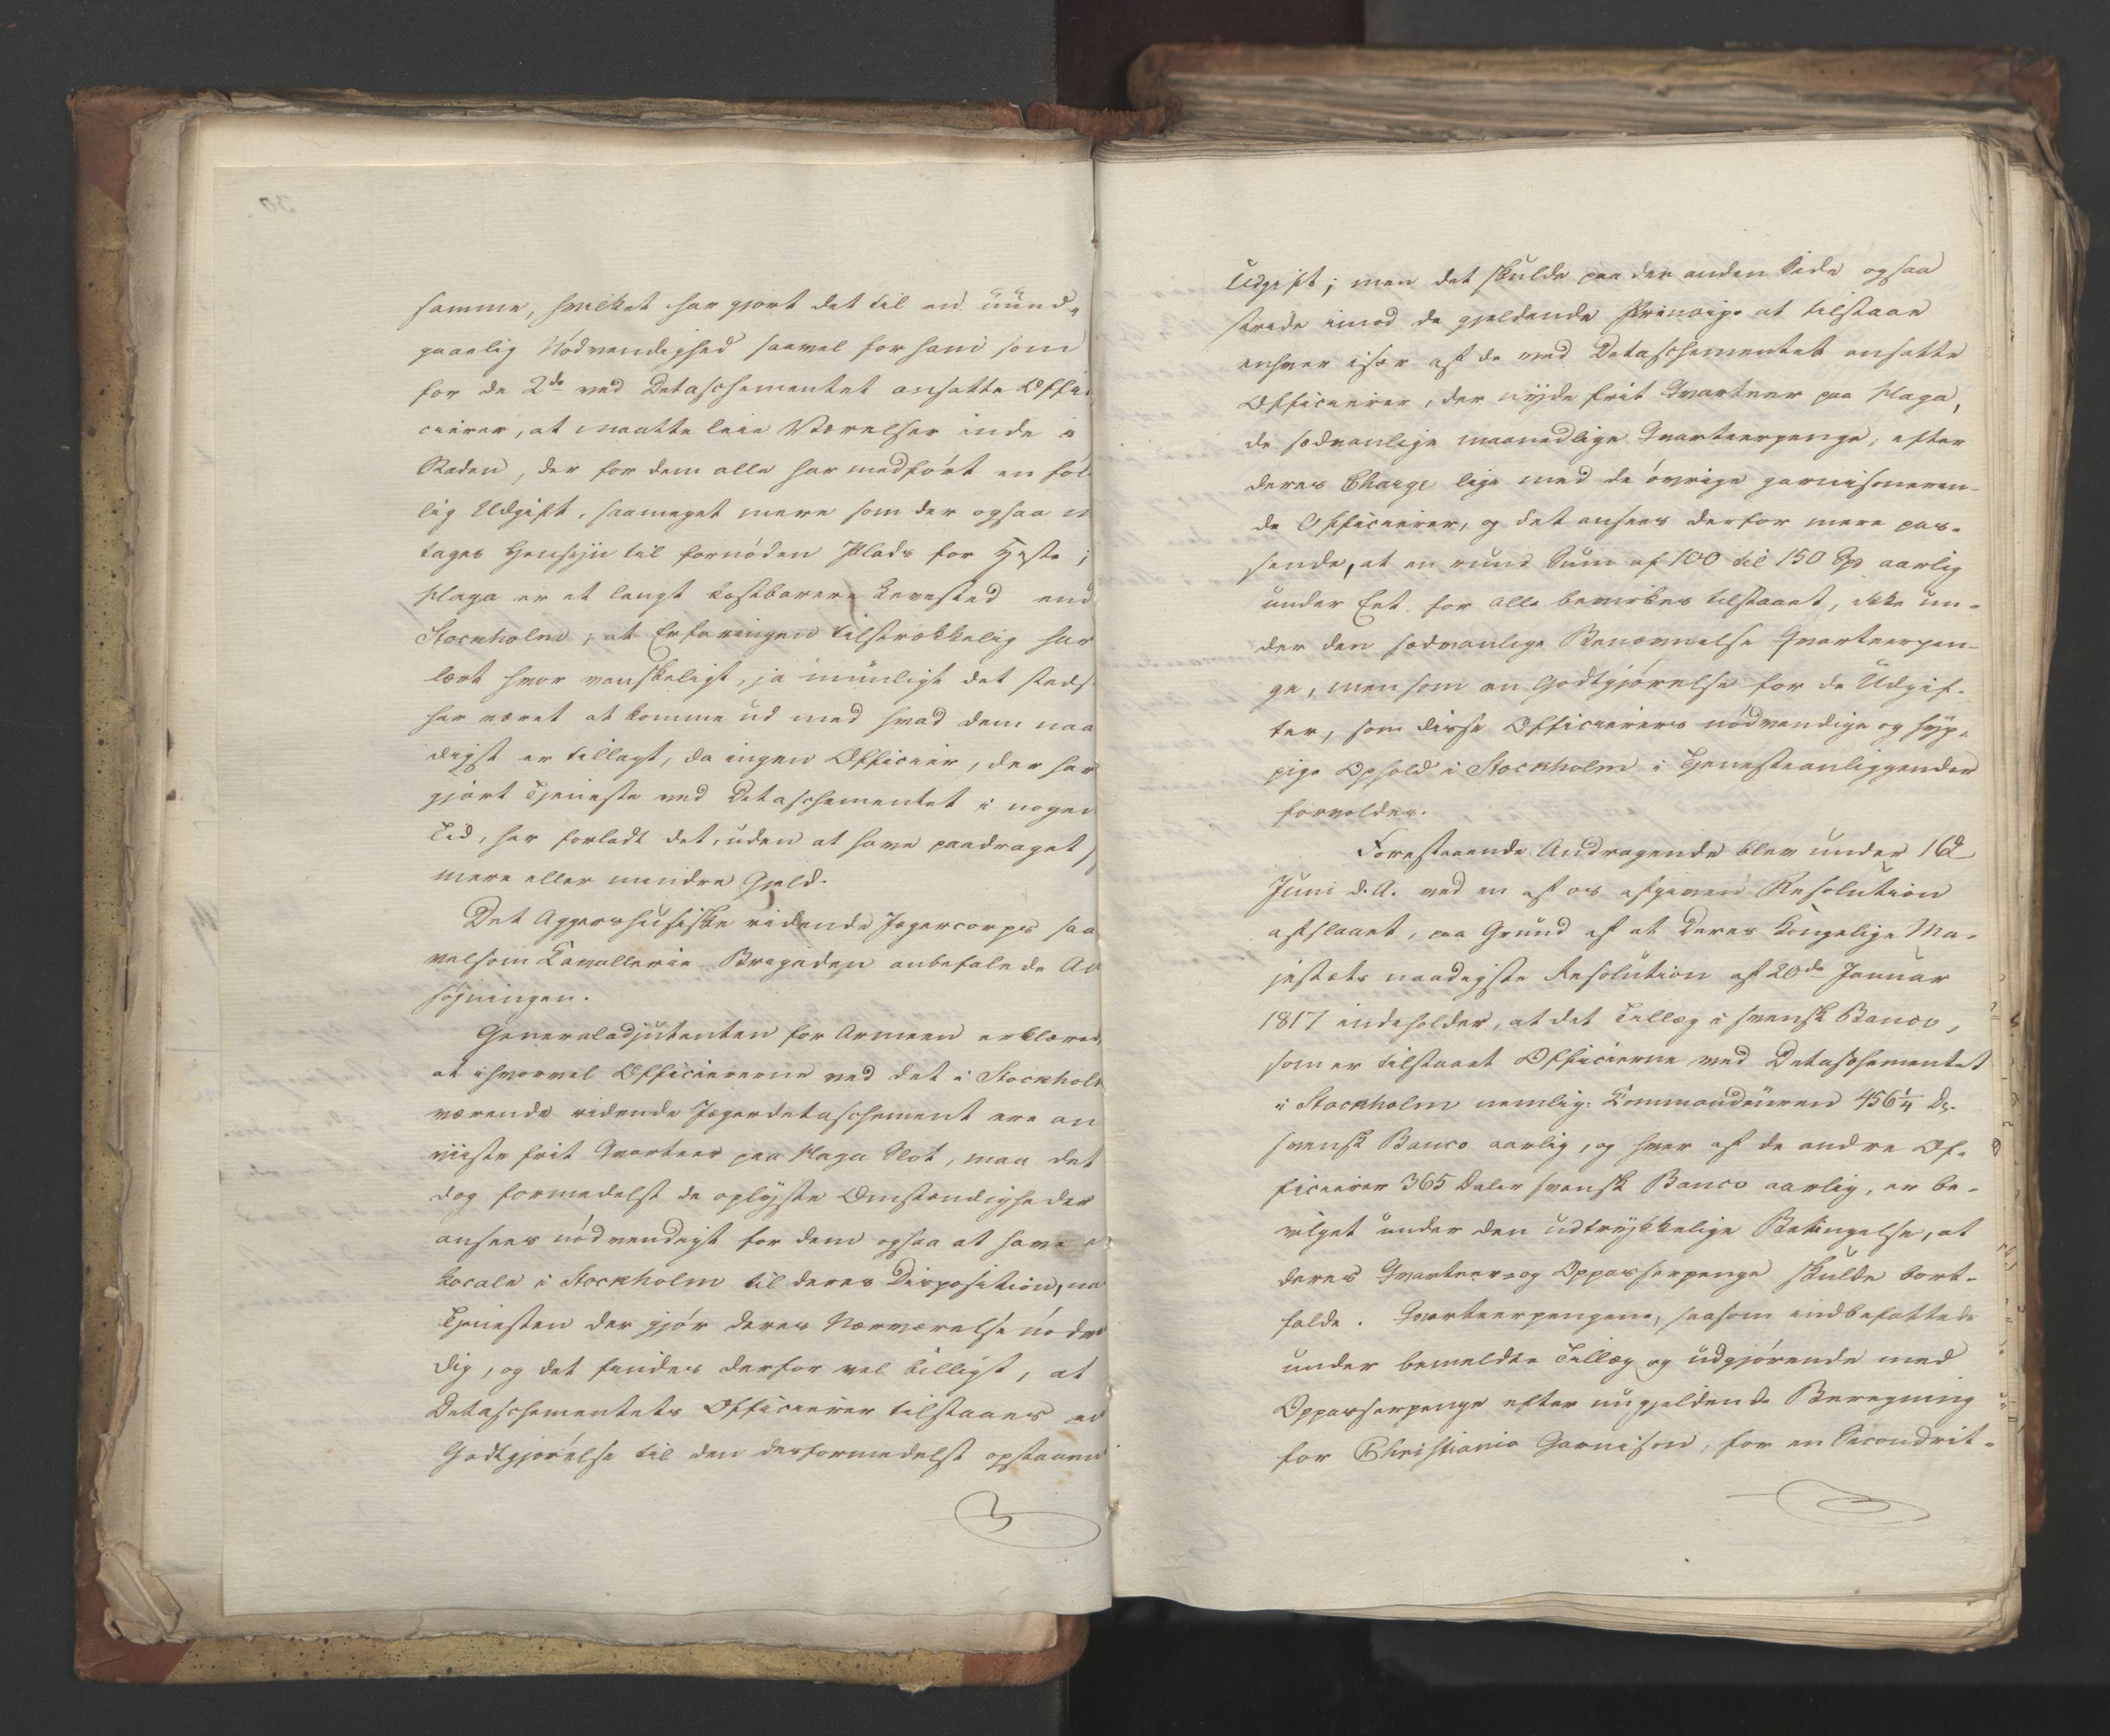 samme, hvilket har gjort det til en uund-
gaaelig Nödvendighed saavel for ham som
for de 2de ved Detaschementet ansatte Offi-
cierer, at maatte leie Værelser inde i
Staden, der for dem alle har medfört en föl
lig Udgift, saameget mere som der ogsaa
tages Hensyn til fornöden Plads for Heste;
Haga er et langt kostbarere Levested end
Stockholm, at Erfaringen tilstrækkelig har
lært hvor vanskeligt, ja umuligt det steds
har været at komme ud med hvad dem naa
digst er tillagt, da ingen Officier, der har
gjort Tjeneste ved Detaschementet i nogen
Tid, har forladt det, uden at have paadraget
mere eller mindre Gjeld.
Det Aggershusiske ridende Jægercorps saa
velsom Cavallerie-Brigaden anbefalede An
sögningen.
Generaladjutanten for Armeen erklærede
at ihvorvel Officiererne ved det i Stockholm
værende ridende Jægerdetaschement ere an
viiste frit Qvarteer paa Haga Slot, maa det
dog formedelst de oplyste Omstændigheder
ansees nödvendigt for dem ogsaa at have
Locale i Stockholm til deres Disposition, na
Tjenesten der gjör deres Nærværelse nödven
dig, og det findes derfor vel billigt, at
Detaschementets Officierer tilstaaes en
Godtgjörelse til den desformedelst opstaaende
Udgift; men det skulde paa den anden Side ogsaa
stride imod de gjeldende Principe at tilstaae
enhver især af de ved Detaschementet ansatte
Officierer, der nyde frit Qvarteer paa Haga,
de sædvanlige maanedlige Qvarteerpenge, efter
deres Charge lige med de övrige garnisoneren-
de Officierer, og det ansees derfor mere pas-
sende, at en rund Sum af 100 til 150 Spd aarlig
under Eet for alle bevirkes tilstaaet, ikke un-
der den sædvanlige Benævnelse Qvarteerpen-
ge, men som en Godtgjörelse for de Udgif-
ter, som disse Officierers nödvendige og hyp-
pige Ophold i Stockholm i Tjenesteanliggender
forvolder.
Forestaaende Andragende blev under 16de
Juni d. A. ved en af os afgiven Resolution
afslaaet, paa Grund af at Deres Kongelige Ma-
jestæts naadigste Resolution af 20de Januar
1817 indeholder, at det Tillæg i svensk Banco,
som er tilstaaet Officierne ved Detaschementet
i Stockholm nemlig: Commandeuren 456 1/4 Dr.
svensk Banco aarlig, og hver af de andre Of-
ficierer 365 Daler svensk Banco aarlig, er be-
vilget under den udtrykkelige Betingelse, at
deres Qvarteer- og Oppasserpenge skulde bort-
falde. Qvarteerpengene, saasom indbefattede
under bemeldte Tillæg og udgjörende med
Oppasserpenge efter nugjeldende Beregning
for Christiania Garnison, for en Secondrit-